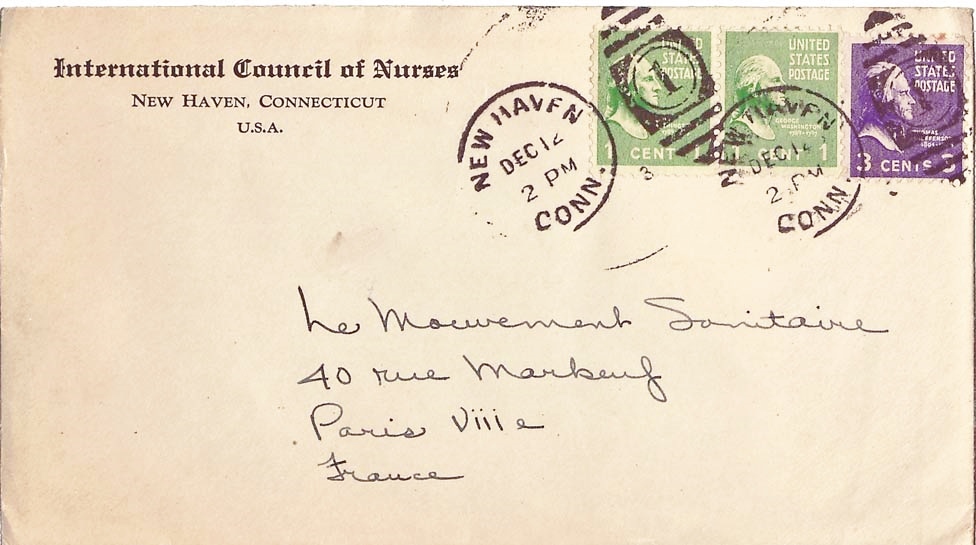 International Council of Nurses
NEW HAVEN, CONNECTICUT
U.S.A.
NEW HAVEN
DEC 12
2 PM
CONN.
UNITED
STATES
POSTAGE
1 CENT 1
1
UNITED
STATES
POSTAGE
GEORGE
WASHINGTON
1789-1797
1 CENT 1
3
NEW HAVEN
DEC 12
2 PM
CONN.
UNITED
STATES
POSTAGE
THOMAS
JEFFERSON
3 CENTS 3
Le Mouvement Sanitaire
40 rue Markeuf
Paris Viiie
France